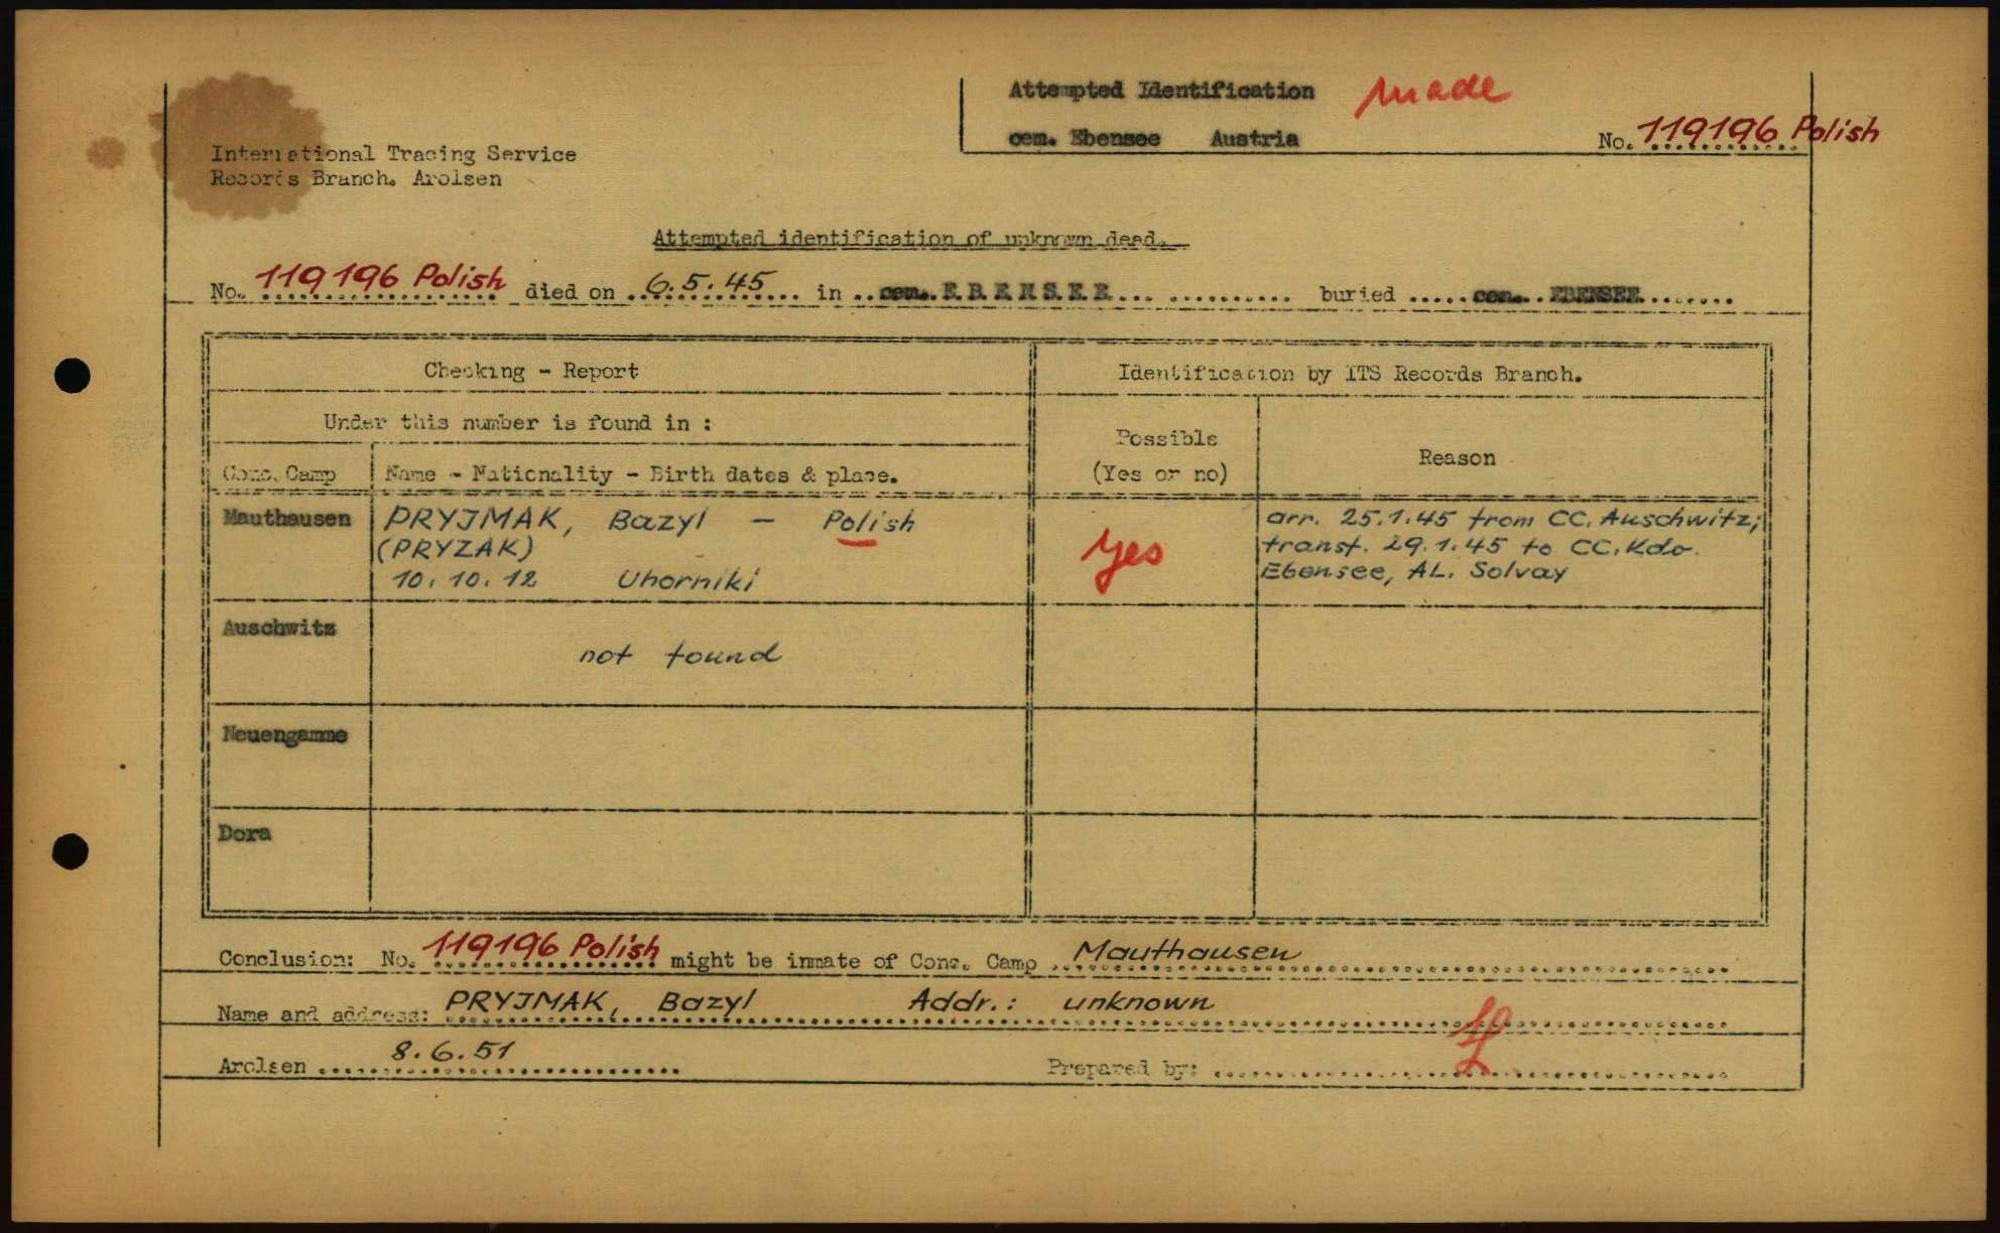 Attempted Identification made
cem. Ebensee Austria
No. 119196 Polish
International Tracing Service
Records Branch. Arolsen
Attempted identification of unknown dead.
No. 119196 Polish died on 6.5.45 in cem. EBENSEE buried cem. EBENSEE
Checking - Report
Identification by ITS Records Branch.
Under this number is found in :
Possible
(Yes or no)
Reason
Conc. Camp
Name - Nationality - Birth dates & place.
Mauthausen
PRYJMAK, Bazyl — Polish
(PRYZAK)
10.10.12 Uhorniki
yes
arr. 25.1.45 from CC. Auschwitz;
transf. 29.1.45 to CC. Kdo.
Ebensee, AL. Solvay
Auschwitz
not found
Neuengamme
Dora
Conclusion: No. 119196 Polish might be inmate of Conc. Camp Mauthausen
Name and address: PRYJMAK, Bazyl Addr.: unknown
Arolsen 8.6.51
Prepared by: